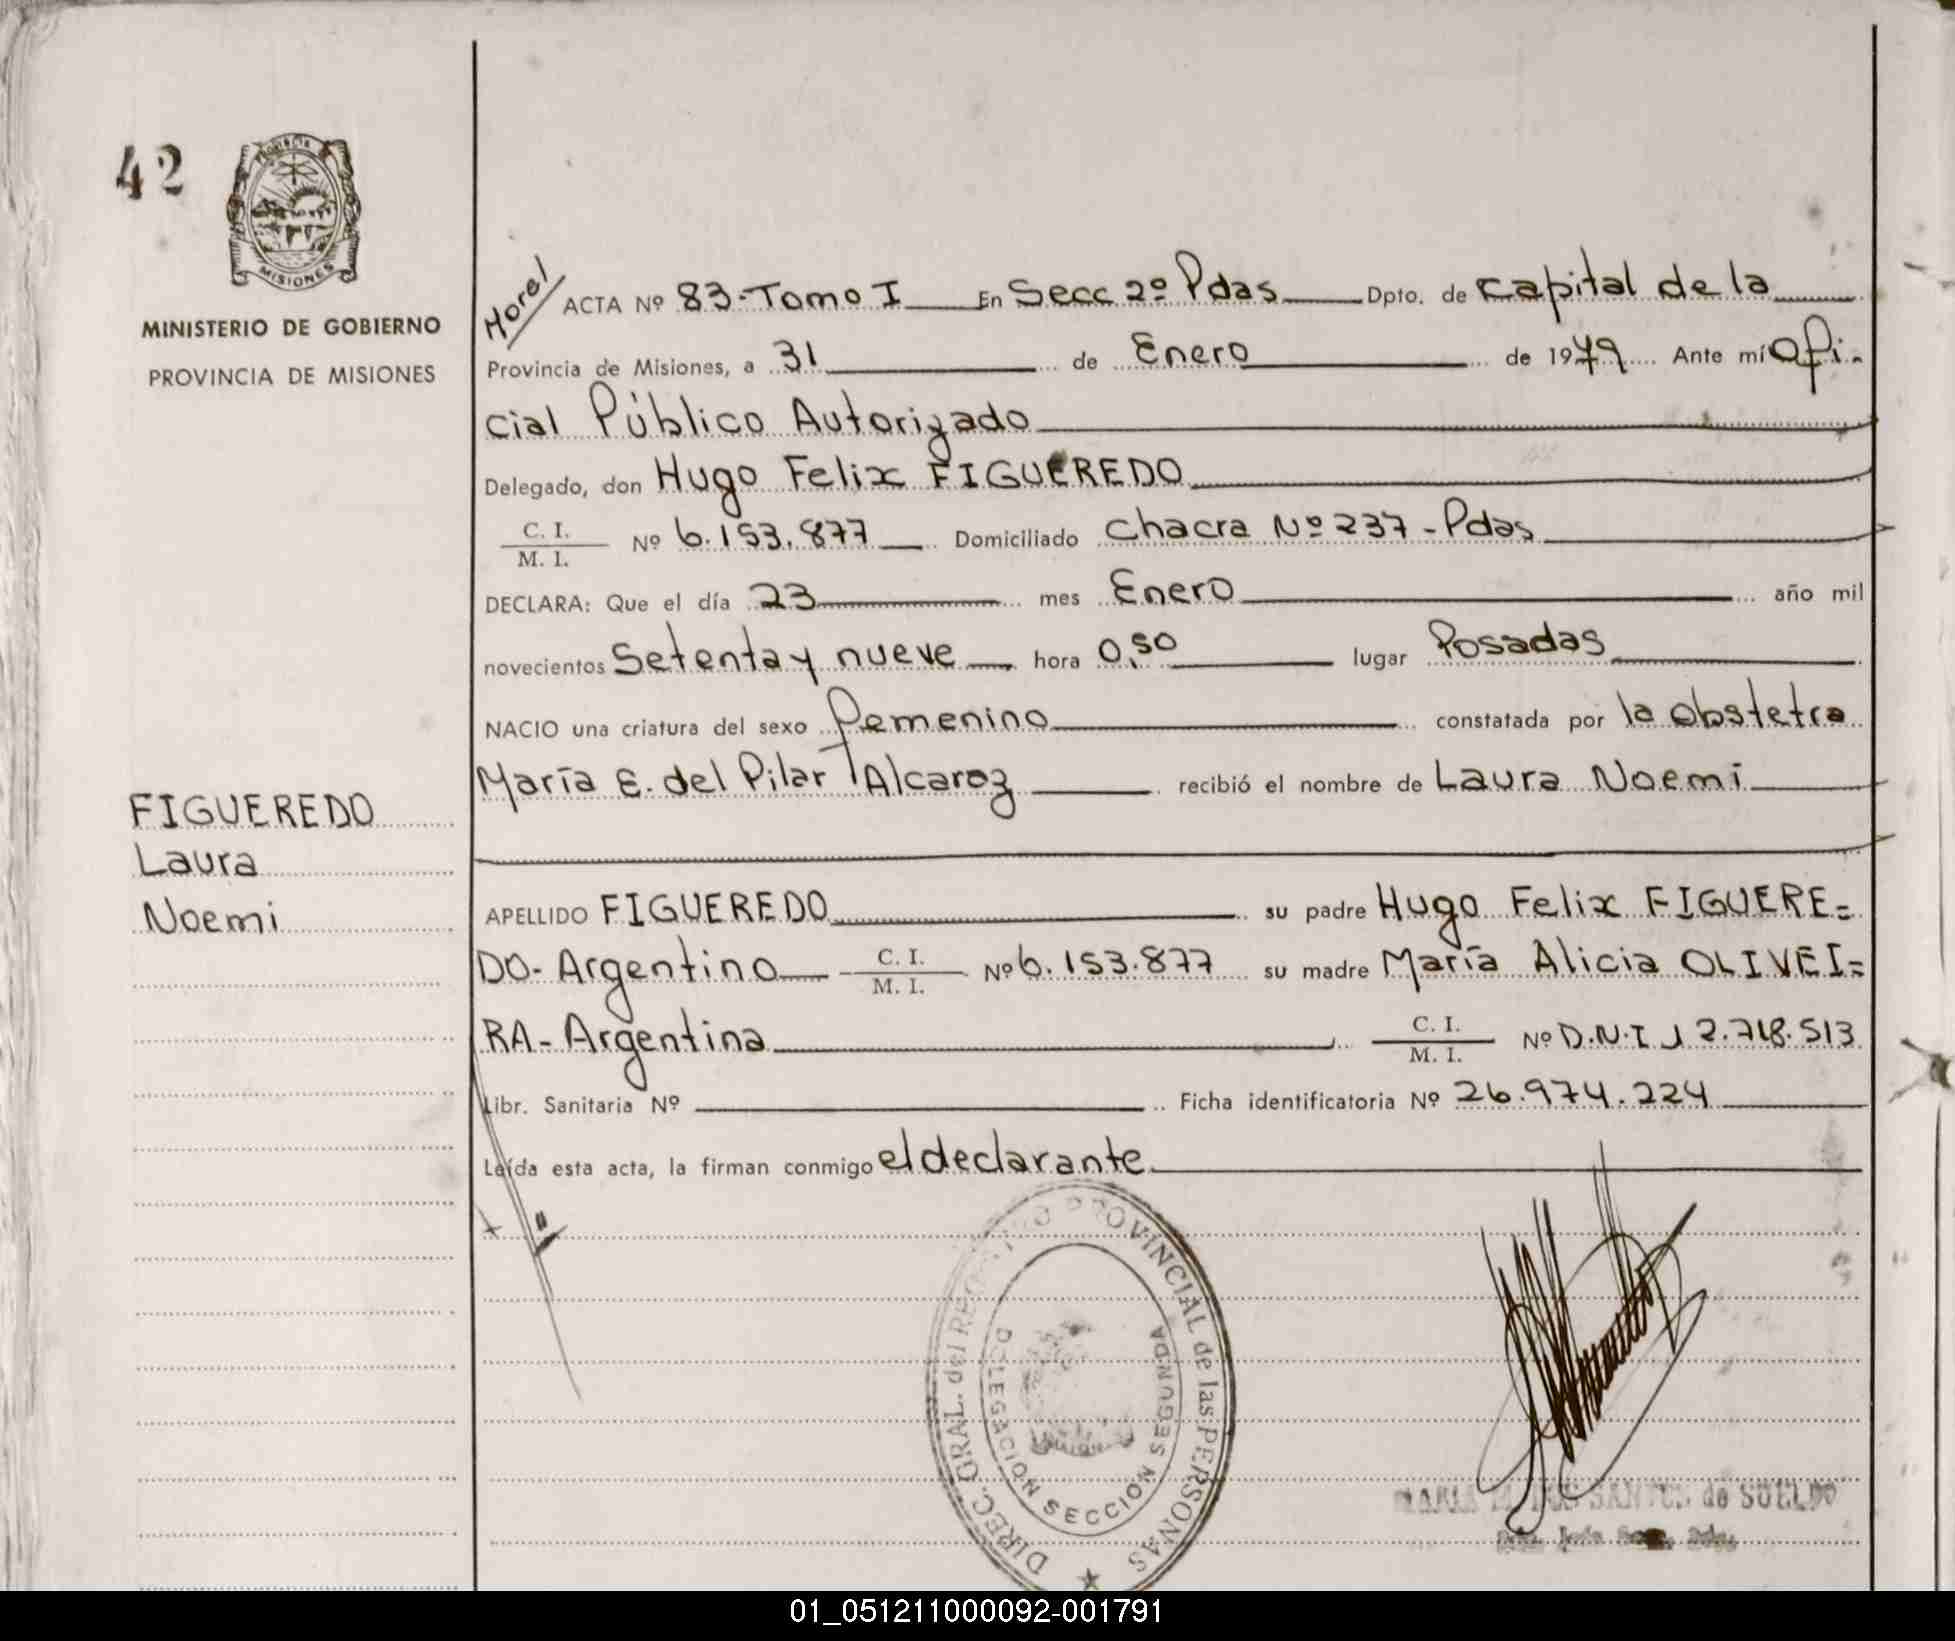 42
PROVINCIA
MISIONES
MINISTERIO DE GOBIERNO
PROVINCIA DE MISIONES
FIGUEREDO
Laura
Noemi
ACTA Nº 83-Tomo I En Secc 2º Pdas Dpto. de Capital de la
Provincia de Misiones, a 31 de Enero de 1979 Ante mí Ofi-
cial Público Autorizado
Delegado, don Hugo Felix FIGUEREDO
C. I.
M. I. Nº 6.153.877 Domiciliado Chacra Nº 237-Pdas
DECLARA: Que el día 23 mes Enero año mil
novecientos Setenta y nueve hora 0,50 lugar Posadas
NACIO una criatura del sexo femenino constatada por la Obstetra
María E. del Pilar Alcaroz recibió el nombre de Laura Noemi
APELLIDO FIGUEREDO su padre Hugo Felix FIGUERE=
DO- Argentino C. I. M. I. Nº 6.153.877 su madre María Alicia OLIVEI=
RA- Argentina C. I. M. I. Nº D.N.I 12.718.513
Libr. Sanitaria Nº Ficha identificatoria Nº 26.974.224
Leída esta acta, la firman conmigo el declarante
DIREC. GRAL. del REGISTRO PROVINCIAL de las PERSONAS
DELEGACION SECCION SEGUNDA
SANTOS de SUELDO
01_051211000092-001791